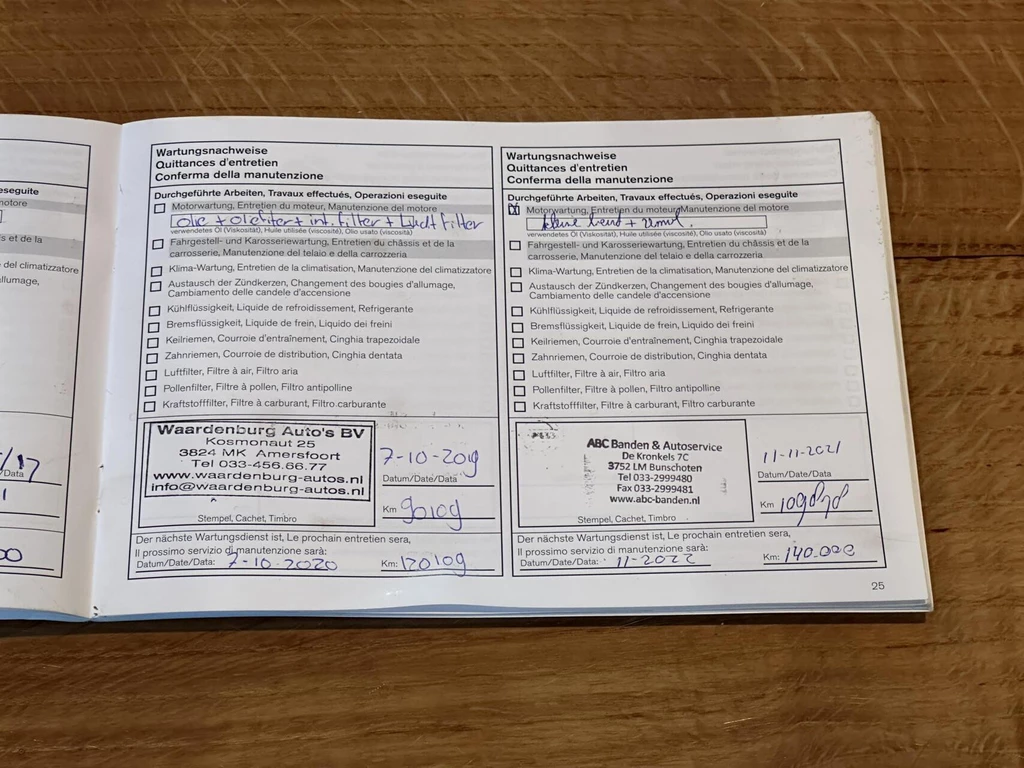 eseguite
otore
s et de la
del climatizzatore
allumage,
/17
/Data
Wartungsnachweise
Quittances d'entretien
Conferma della manutenzione
Durchgeführte Arbeiten, Travaux effectués, Operazioni eseguite
Motorwartung, Entretien du moteur, Manutenzione del motore
olie + oliefilter + int. filter + Lucht filter
verwendetes Öl (Viskosität), Huile utilisée (viscosité), Olio usato (viscosità)
Fahrgestell- und Karosseriewartung, Entretien du châssis et de la
carrosserie, Manutenzione del telaio e della carrozzeria
Klima-Wartung, Entretien de la climatisation, Manutenzione del climatizzatore
Austausch der Zündkerzen, Changement des bougies d'allumage,
Cambiamento delle candele d'accensione
Kühlflüssigkeit, Liquide de refroidissement, Refrigerante
Bremsflüssigkeit, Liquide de frein, Liquido dei freini
Keilriemen, Courroie d'entraînement, Cinghia trapezoidale
Zahnriemen, Courroie de distribution, Cinghia dentata
Luftfilter, Filtre à air, Filtro aria
Pollenfilter, Filtre à pollen, Filtro antipolline
Kraftstofffilter, Filtre à carburant, Filtro carburante
Waardenburg Auto's BV
Kosmonaut 25
3824 MK Amersfoort
Tel 033-456.66.77
www.waardenburg-autos.nl
info@waardenburg-autos.nl
Stempel, Cachet, Timbro
7-10-2019
Datum/Date/Data
Km 90109
Der nächste Wartungsdienst ist, Le prochain entretien sera,
Il prossimo servizio di manutenzione sarà:
Datum/Date/Data: 7-10-2020 Km: 120109
Wartungsnachweise
Quittances d'entretien
Conferma della manutenzione
Durchgeführte Arbeiten, Travaux effectués, Operazioni eseguite
Motorwartung, Entretien du moteur, Manutenzione del motore
kleine beurt +
verwendetes Öl (Viskosität), Huile utilisée (viscosité), Olio usato (viscosità)
Fahrgestell- und Karosseriewartung, Entretien du châssis et de la
carrosserie, Manutenzione del telaio e della carrozzeria
Klima-Wartung, Entretien de la climatisation, Manutenzione del climatizzatore
Austausch der Zündkerzen, Changement des bougies d'allumage,
Cambiamento delle candele d'accensione
Kühlflüssigkeit, Liquide de refroidissement, Refrigerante
Bremsflüssigkeit, Liquide de frein, Liquido dei freini
Keilriemen, Courroie d'entraînement, Cinghia trapezoidale
Zahnriemen, Courroie de distribution, Cinghia dentata
Luftfilter, Filtre à air, Filtro aria
Pollenfilter, Filtre à pollen, Filtro antipolline
Kraftstofffilter, Filtre à carburant, Filtro carburante
ABC Banden & Autoservice
De Kronkels 7C
3752 LM Bunschoten
Tel 033-2999480
Fax 033-2999481
www.abc-banden.nl
Stempel, Cachet, Timbro
11-11-2021
Datum/Date/Data
Km
Der nächste Wartungsdienst ist, Le prochain entretien sera,
Il prossimo servizio di manutenzione sarà:
Datum/Date/Data: 11-2022 Km: 140.000
25